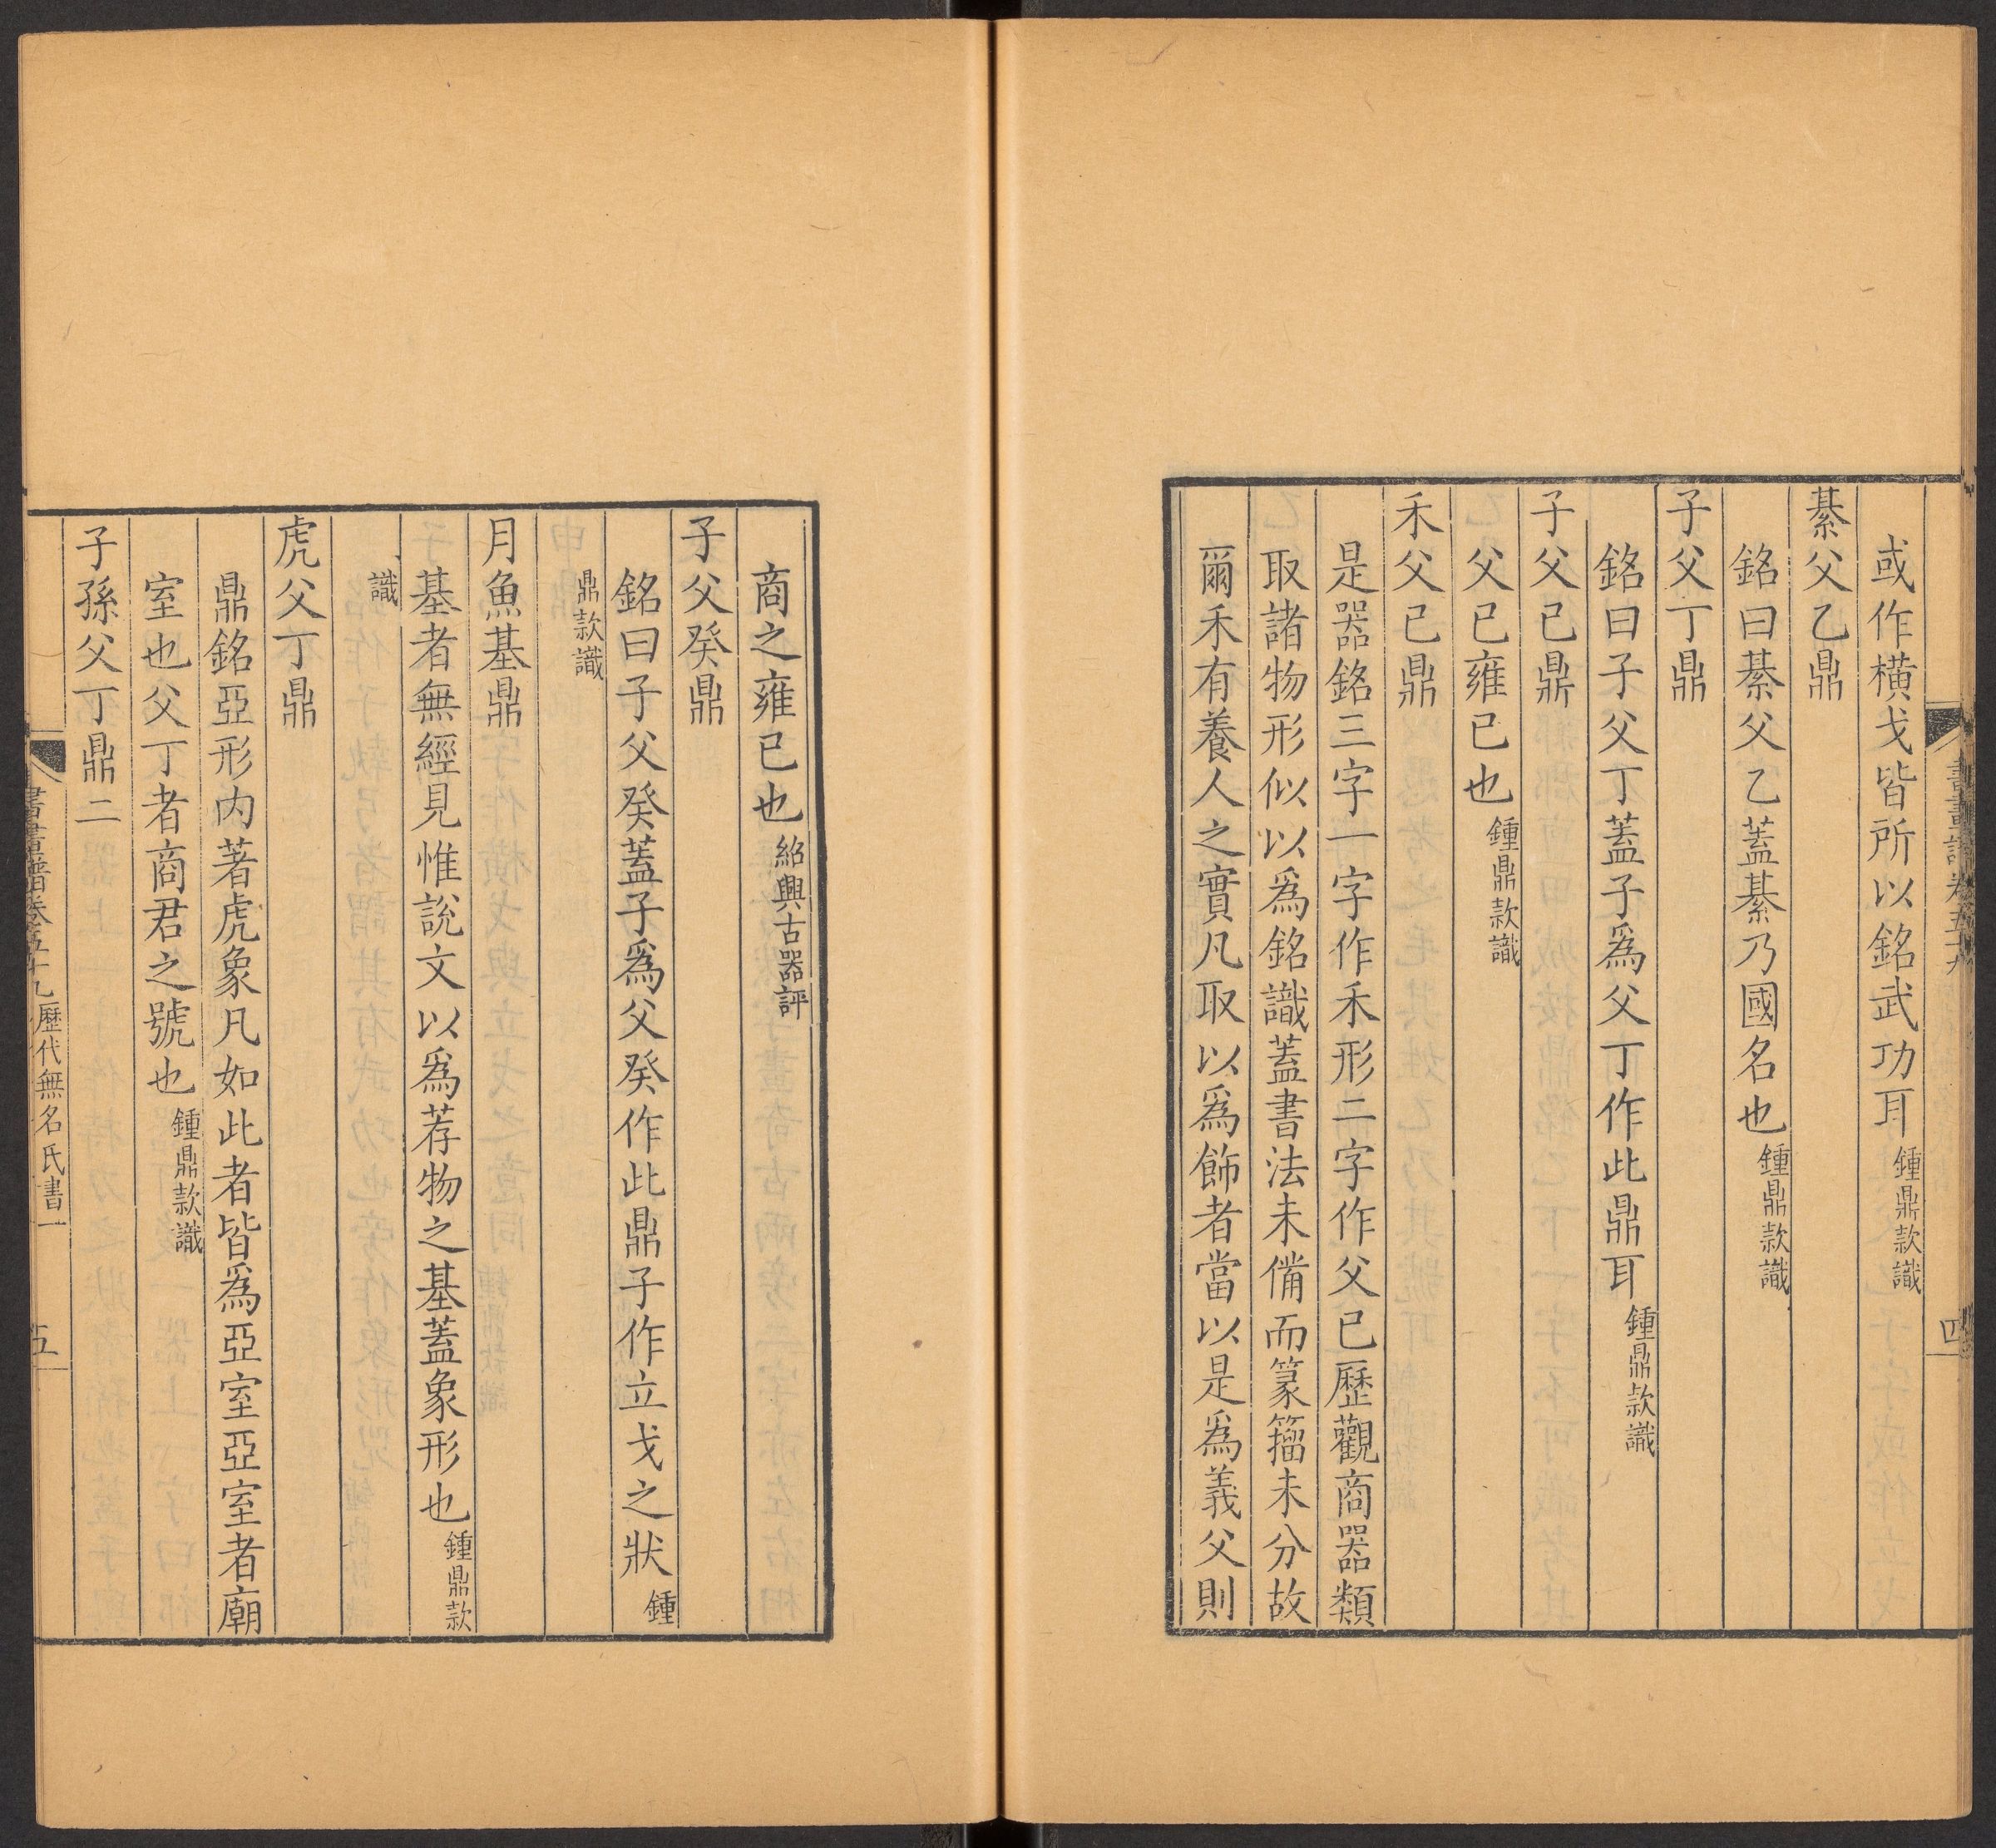 或作橫戈皆所以銘武功耳鍾鼎款識
綦父乙鼎
銘曰綦父乙蓋綦乃國名也鍾鼎款識
子父丁鼎
銘曰子父丁蓋子爲父丁作此鼎耳鍾鼎款識
子父已鼎
父已雍已也鍾鼎款識
禾父已鼎
是器銘三字一字作禾形二字作父已歷觀商器類
取諸物形似以爲銘識蓋書法未備而篆籀未分故
爾禾有養人之實凡取以爲飾者當以是爲義父則
商之雍已也紹興古器評
子父癸鼎
銘曰子父癸蓋子爲父癸作此鼎子作立戈之狀鍾
鼎款識
月魚基鼎
基者無經見惟説文以爲荐物之基蓋象形也鍾鼎款
識
虎父丁鼎
鼎銘亞形内著虎象凡如此者皆爲亞室亞室者廟
室也父丁者商君之號也鍾鼎款識
子孫父丁鼎二
書畫譜卷五十九歷代無名氏書一
五